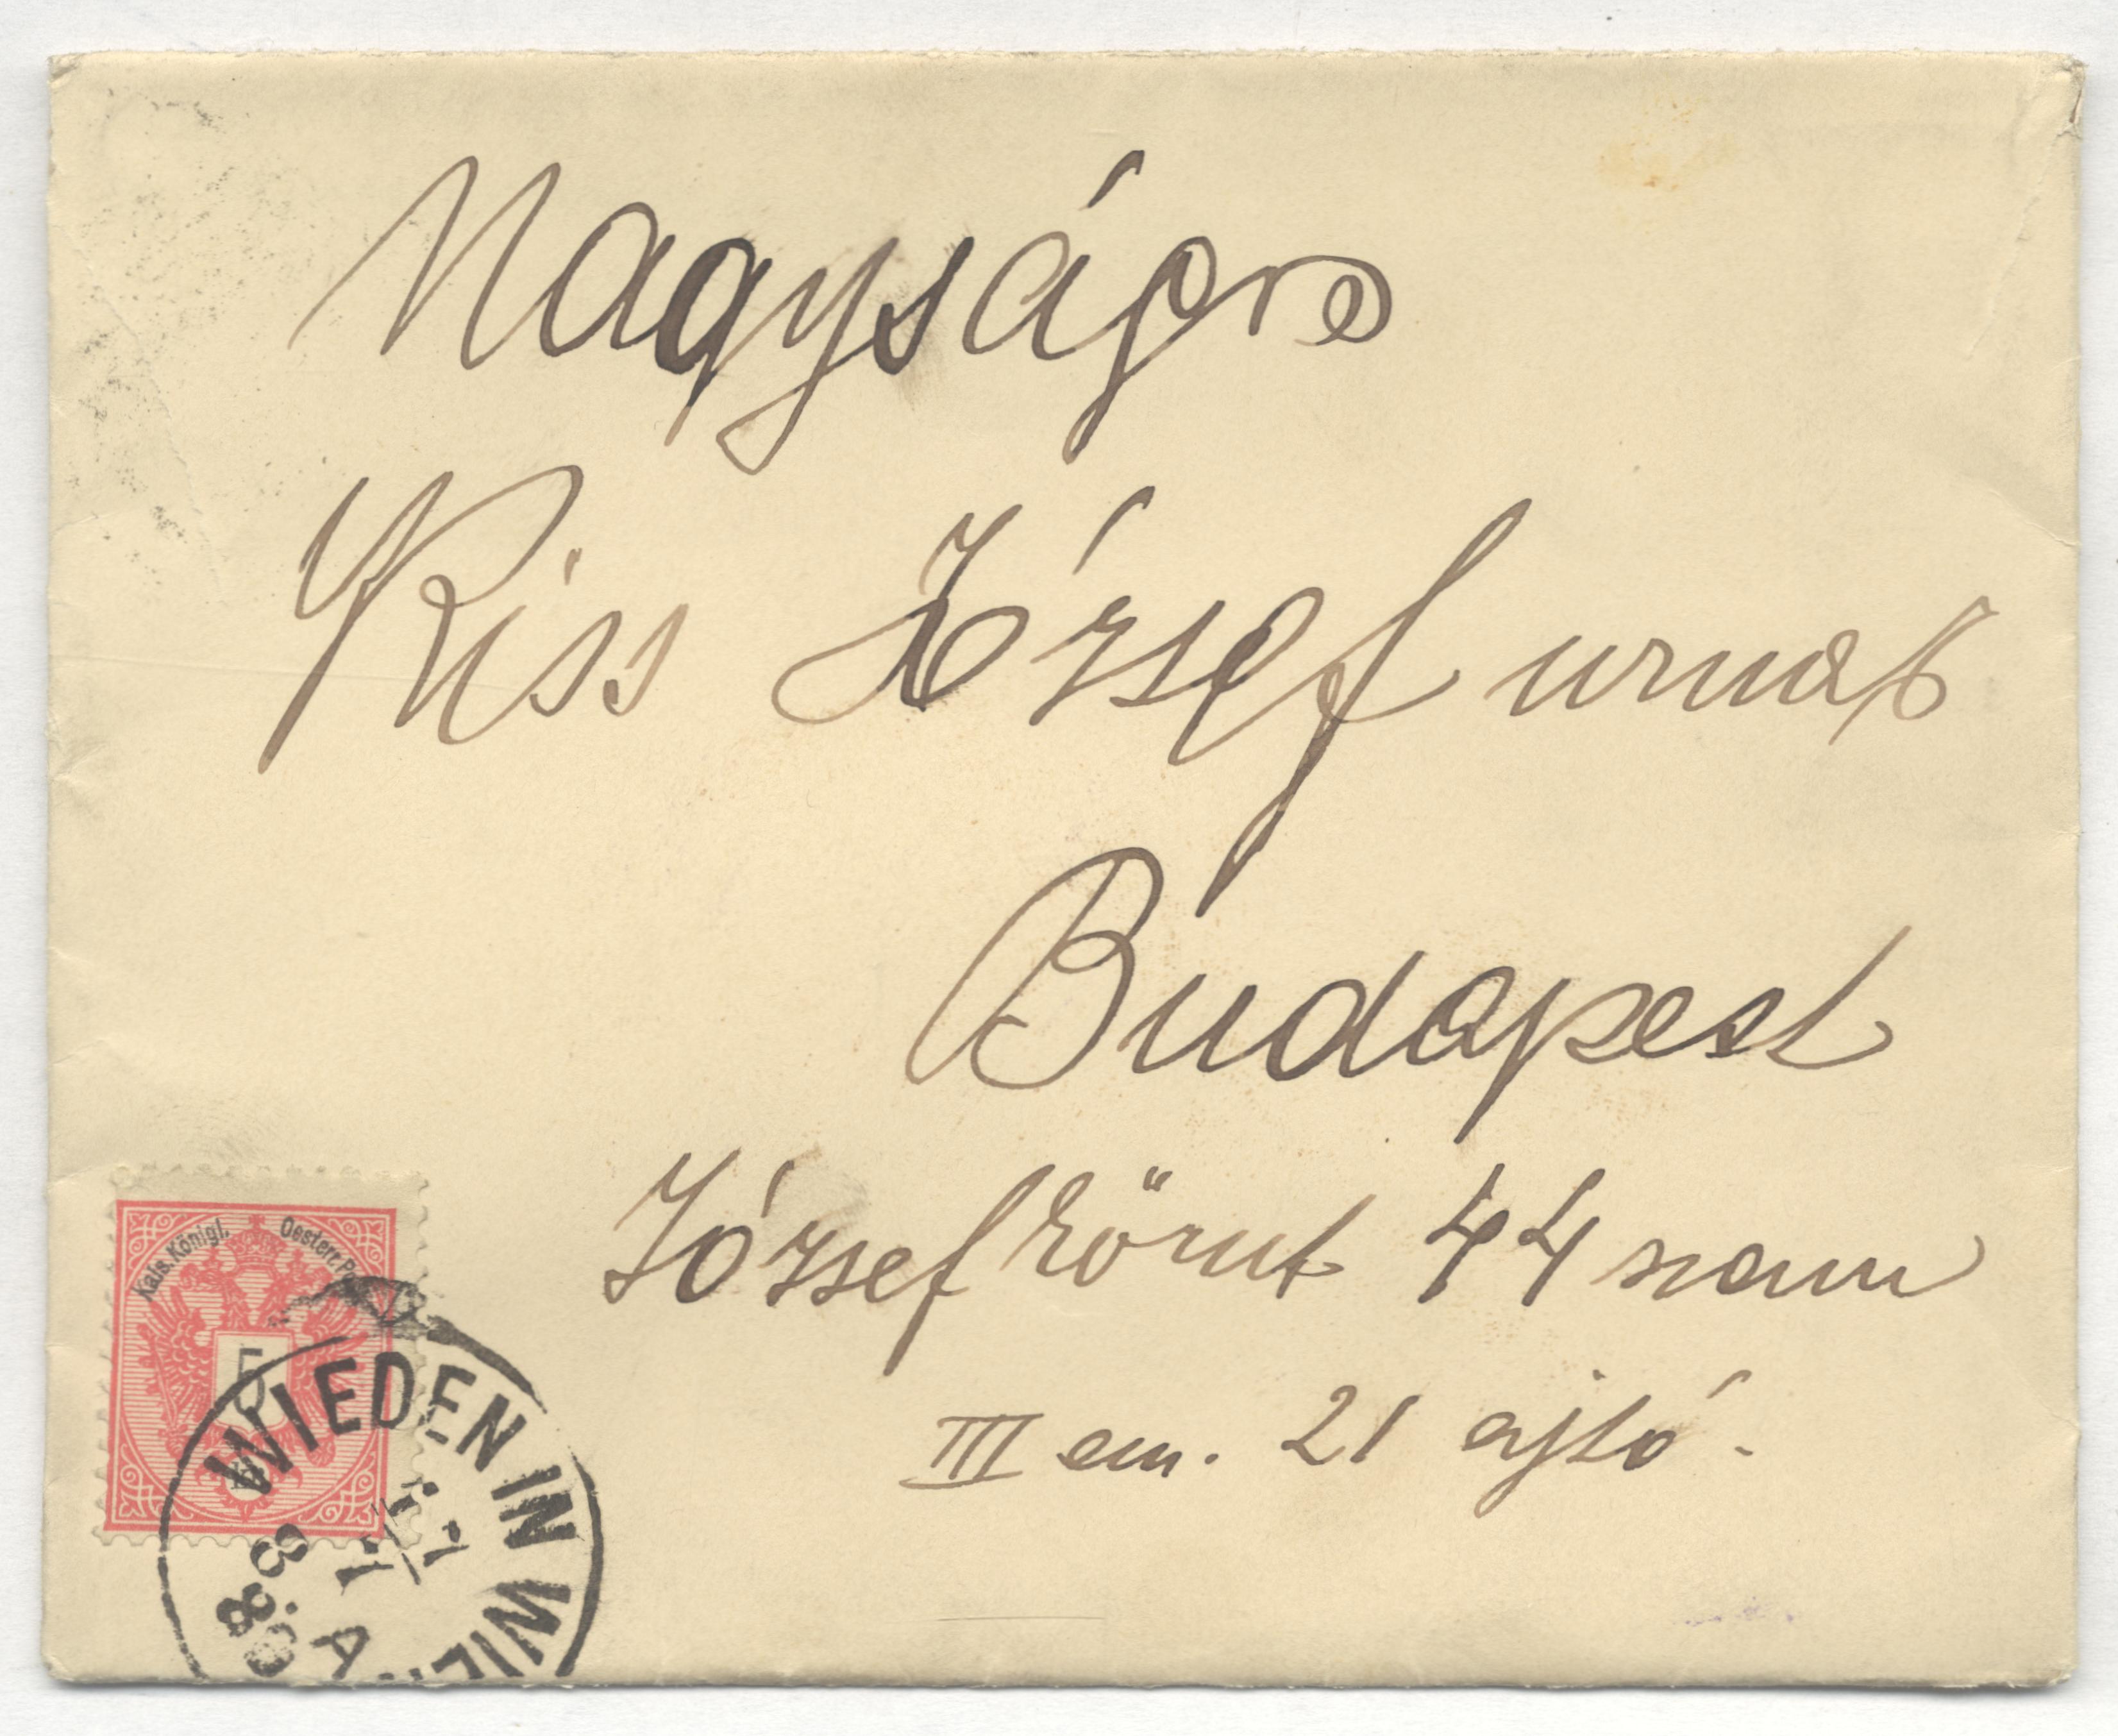 Nagyságos
Kiss József urnak
Budapest
Józsefkörut 44 szám
III em. 21 ajtó.
Kais. Königl. Oesterr. Post
5
WIEDEN IN WIEN